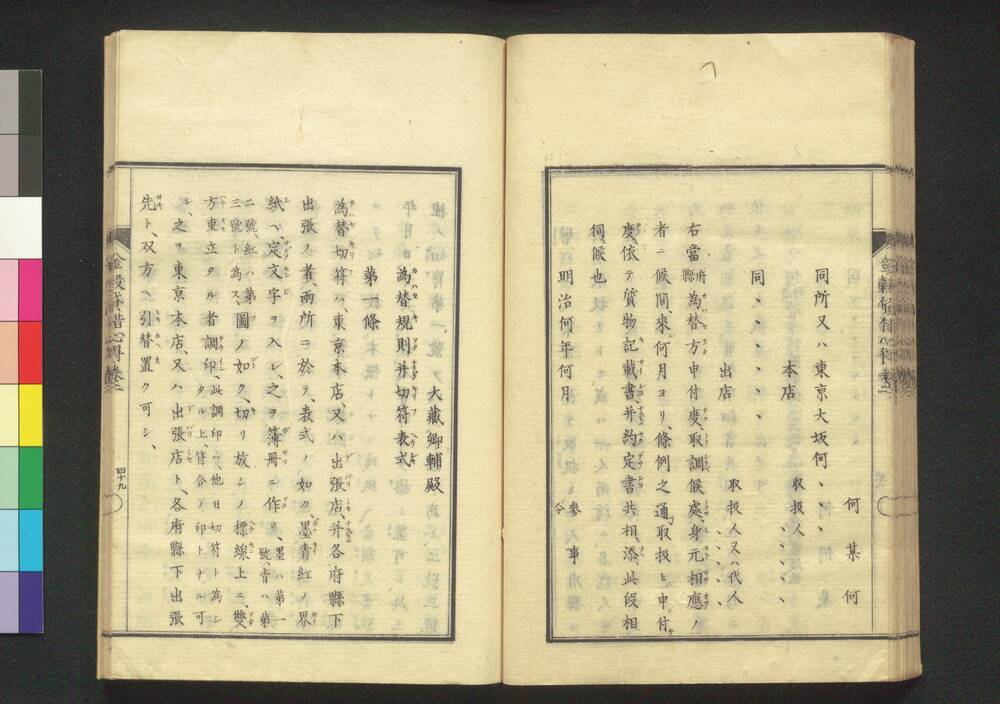 何某何
同所又ハ東京大坂何、、、
本店　取扱人、、、、
同、、、、、
出店　取扱人又ハ代人、、、、
右當府縣為替方申付度、取調候處、身元相應ノ
者ニ候間、來何月ヨリ、條例之通、取扱ヒ申付
度、依テ質物記載書、并約定書共相添、此段相
伺候也
明治何年何月　參事
令
大藏卿輔殿
為替規則并切符表式
第一條
為替切符ハ、東京本店、又ハ出張店、并各府縣下
出張ノ者、兩所ニ於テ、表式ノ如ク、墨青紅ノ界
紙ヘ定文字ヲ入レ、之ヲ簿冊ニ作リ、墨ハ第一號、青ハ第
二號、紅ハ第
三號ト為ス、圖ノ如ク、切リ放シノ標線上ニ、雙
方重立タル者調印、此調印ハ、他日切符ト為シタル上、符合ノ印トナル可
シ、之ヲ東京本店、又ハ出張店ト、各府縣下出張
先ト、双方ヘ引替置ク可シ、
金穀貸借心得 卷二
四十九